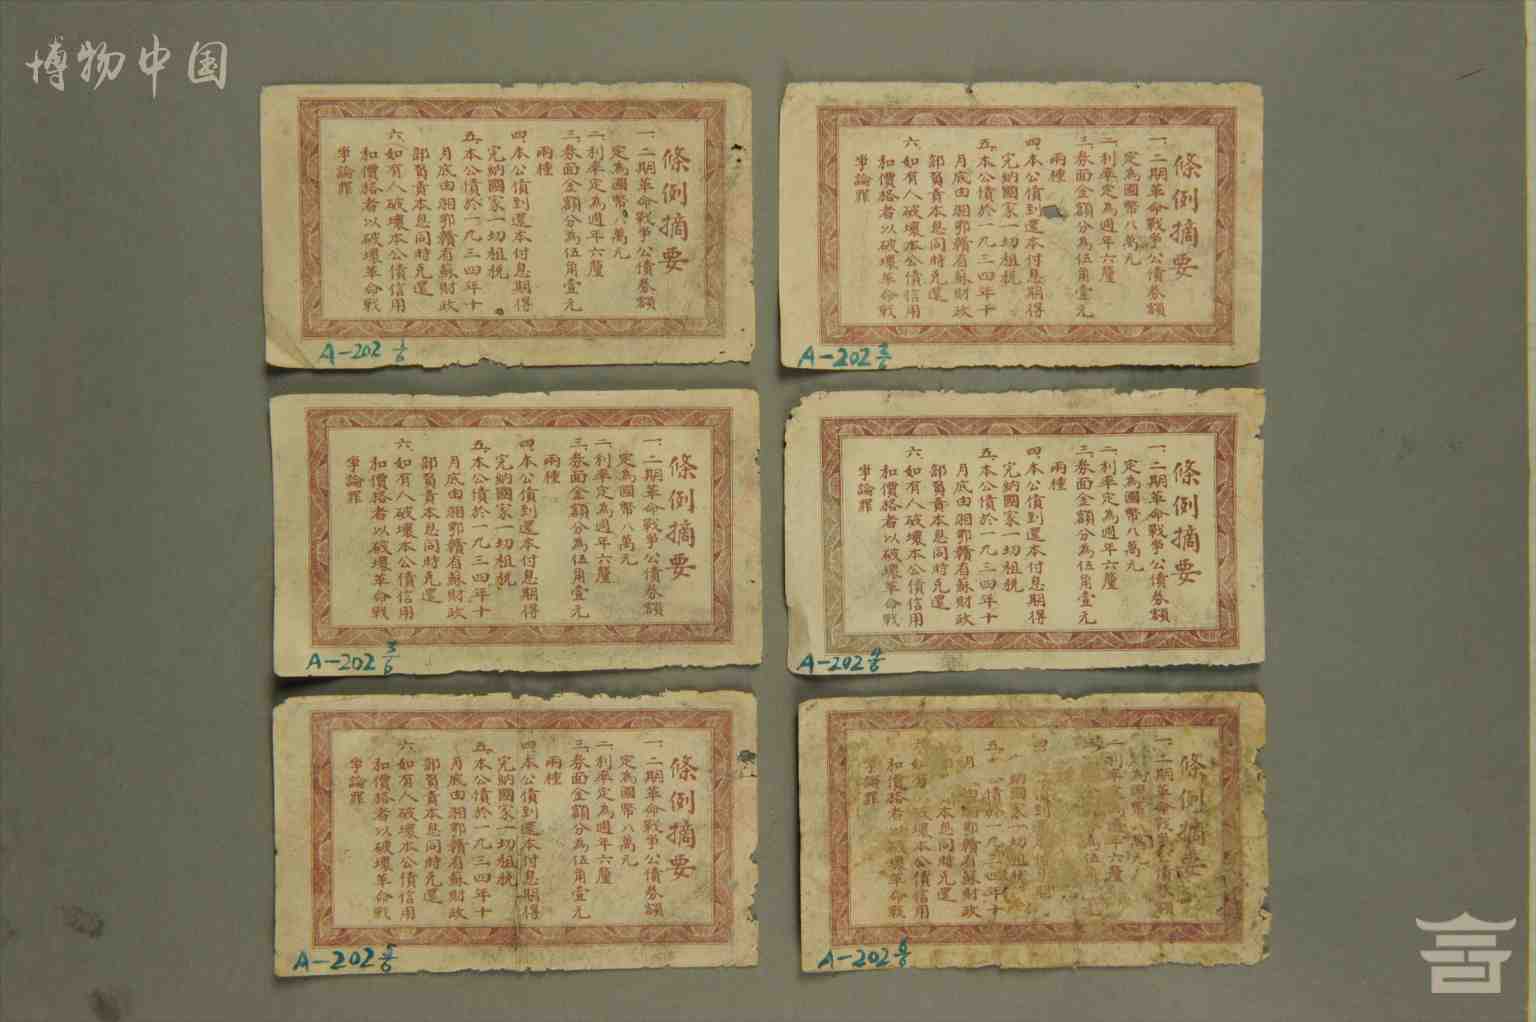 博物中国
條例摘要
一、二期革命戰爭公債券額
定為國幣八萬元
二、利率定為週年六釐
三、券面金額分為伍角壹元
兩種
四、本公債到還本付息期得
完納國家一切租稅
五、本公債於一九三四年十
月底由湘鄂贛省蘇財政
部負責本息同時兌還
六、如有人破壞本公債信用
和價格者以破壞革命戰
爭論罪
A-202 1/6
條例摘要
一、二期革命戰爭公債券額
定為國幣八萬元
二、利率定為週年六釐
三、券面金額分為伍角壹元
兩種
四、本公債到還本付息期得
完納國家一切租稅
五、本公債於一九三四年十
月底由湘鄂贛省蘇財政
部負責本息同時兌還
六、如有人破壞本公債信用
和價格者以破壞革命戰
爭論罪
A-202 2/6
條例摘要
一、二期革命戰爭公債券額
定為國幣八萬元
二、利率定為週年六釐
三、券面金額分為伍角壹元
兩種
四、本公債到還本付息期得
完納國家一切租稅
五、本公債於一九三四年十
月底由湘鄂贛省蘇財政
部負責本息同時兌還
六、如有人破壞本公債信用
和價格者以破壞革命戰
爭論罪
A-202 3/6
條例摘要
一、二期革命戰爭公債券額
定為國幣八萬元
二、利率定為週年六釐
三、券面金額分為伍角壹元
兩種
四、本公債到還本付息期得
完納國家一切租稅
五、本公債於一九三四年十
月底由湘鄂贛省蘇財政
部負責本息同時兌還
六、如有人破壞本公債信用
和價格者以破壞革命戰
爭論罪
A-202 4/6
條例摘要
一、二期革命戰爭公債券額
定為國幣八萬元
二、利率定為週年六釐
三、券面金額分為伍角壹元
兩種
四、本公債到還本付息期得
完納國家一切租稅
五、本公債於一九三四年十
月底由湘鄂贛省蘇財政
部負責本息同時兌還
六、如有人破壞本公債信用
和價格者以破壞革命戰
爭論罪
A-202 5/6
條例摘要
一、二期革命戰爭公債券額
為國幣八萬元
利率定為週年六釐
為伍角
四
納國家一切租稅
五、公債於一九三四年十
月由湘鄂贛省蘇財政
本息同時兌還
六、如有破壞本公債信用
和價格者以破壞革命戰
爭論罪
A-202 6/6